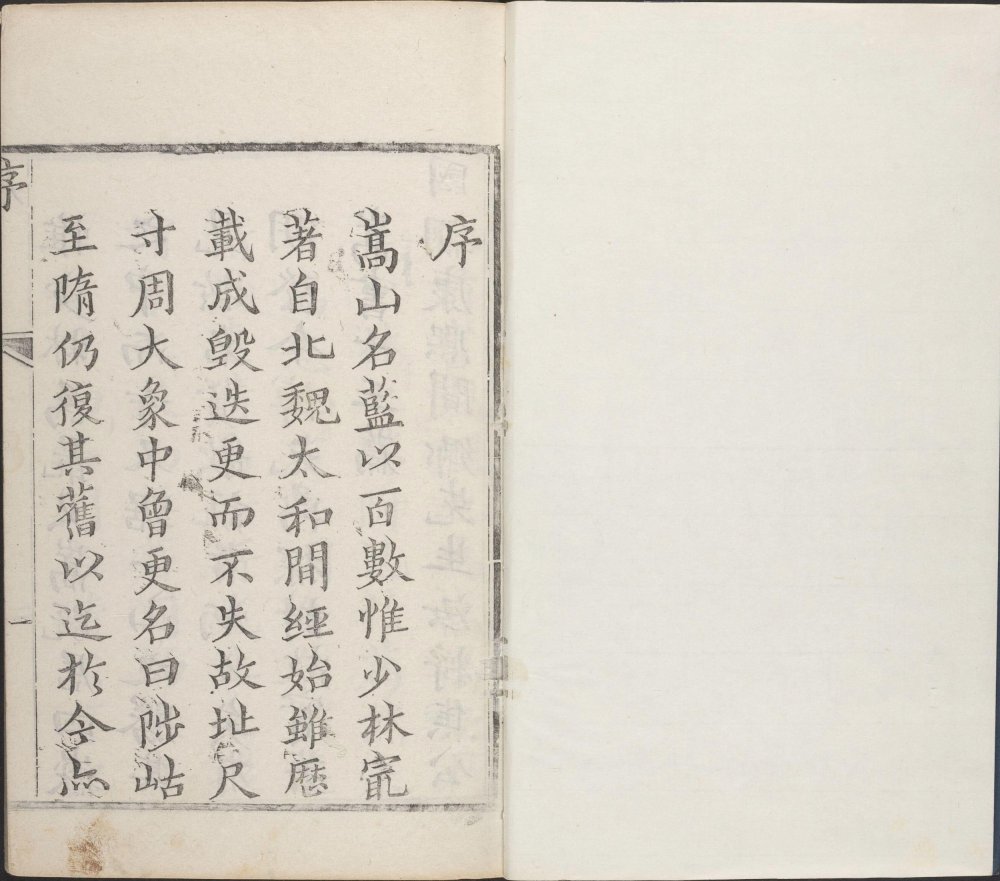 序
嵩山名藍以百數惟少林㝡
著自北魏太和間經始雖歷
載成毀迭更而不失故址尺
寸周大象中曾更名曰陟岵
至隋仍復其舊以迄於今亦
序
一